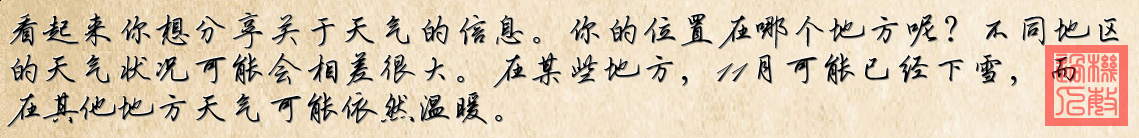 看起来你想分享关于天气的信息。你的位置在哪个地方呢？不同地区
的天气状况可能会相差很大。在某些地方，11月可能已经下雪，而
在其他地方天气可能依然温暖。